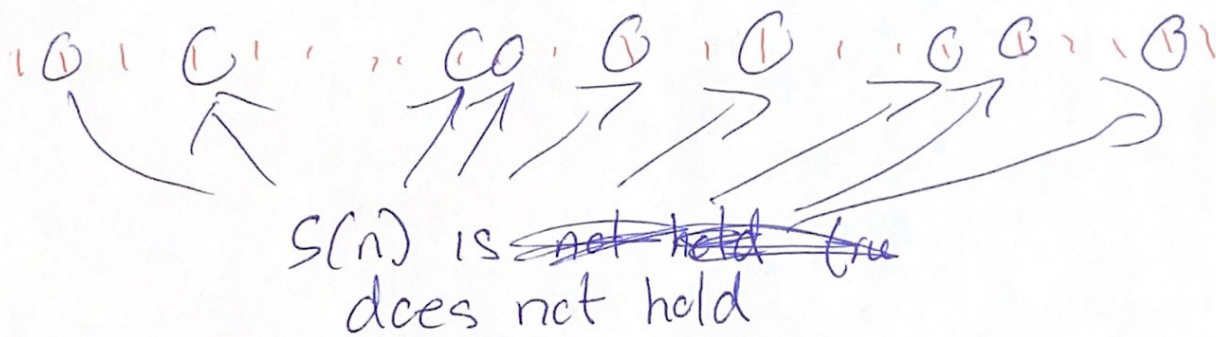 S(n) is not hold tru
does not hold